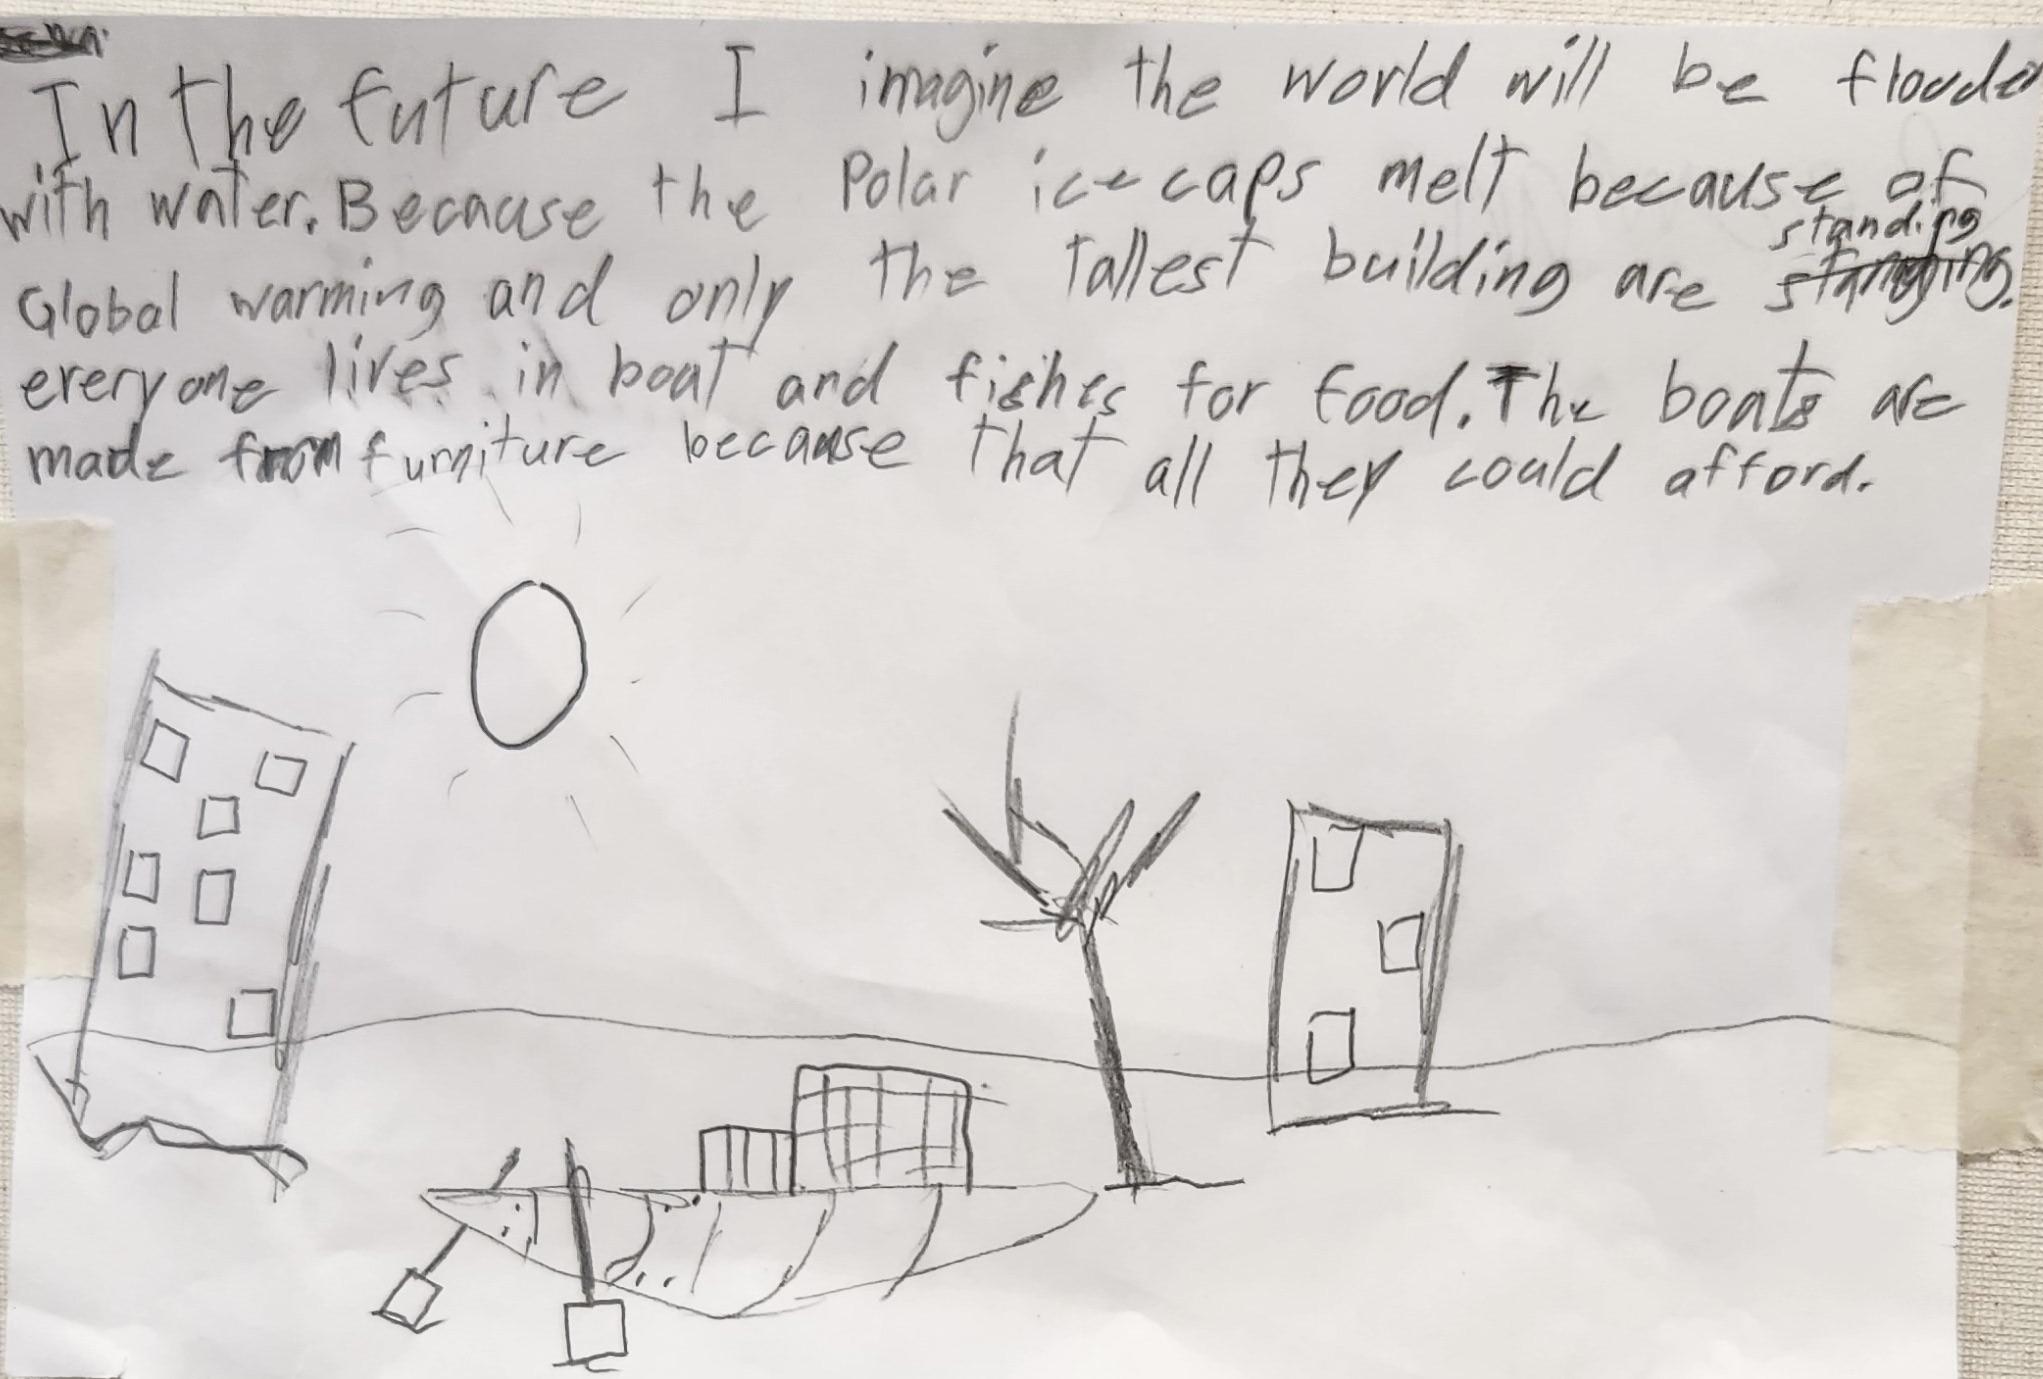 In the future I imagine the world will be flooded
with water. Because the Polar ice caps melt because of
standing
Global warming and only the tallest building are
everyone lives in boat and fishes for food. The boats are
made from furniture because that all they could afford.